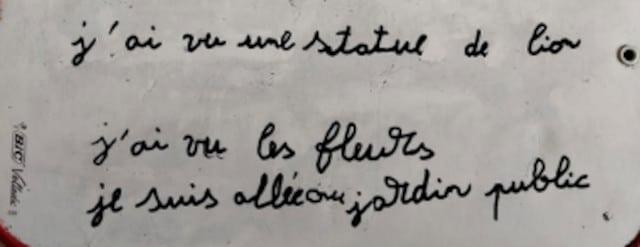 j'ai vu une statue de lion
j'ai vu les fleurs
je suis allée au jardin public
BIC Velleda